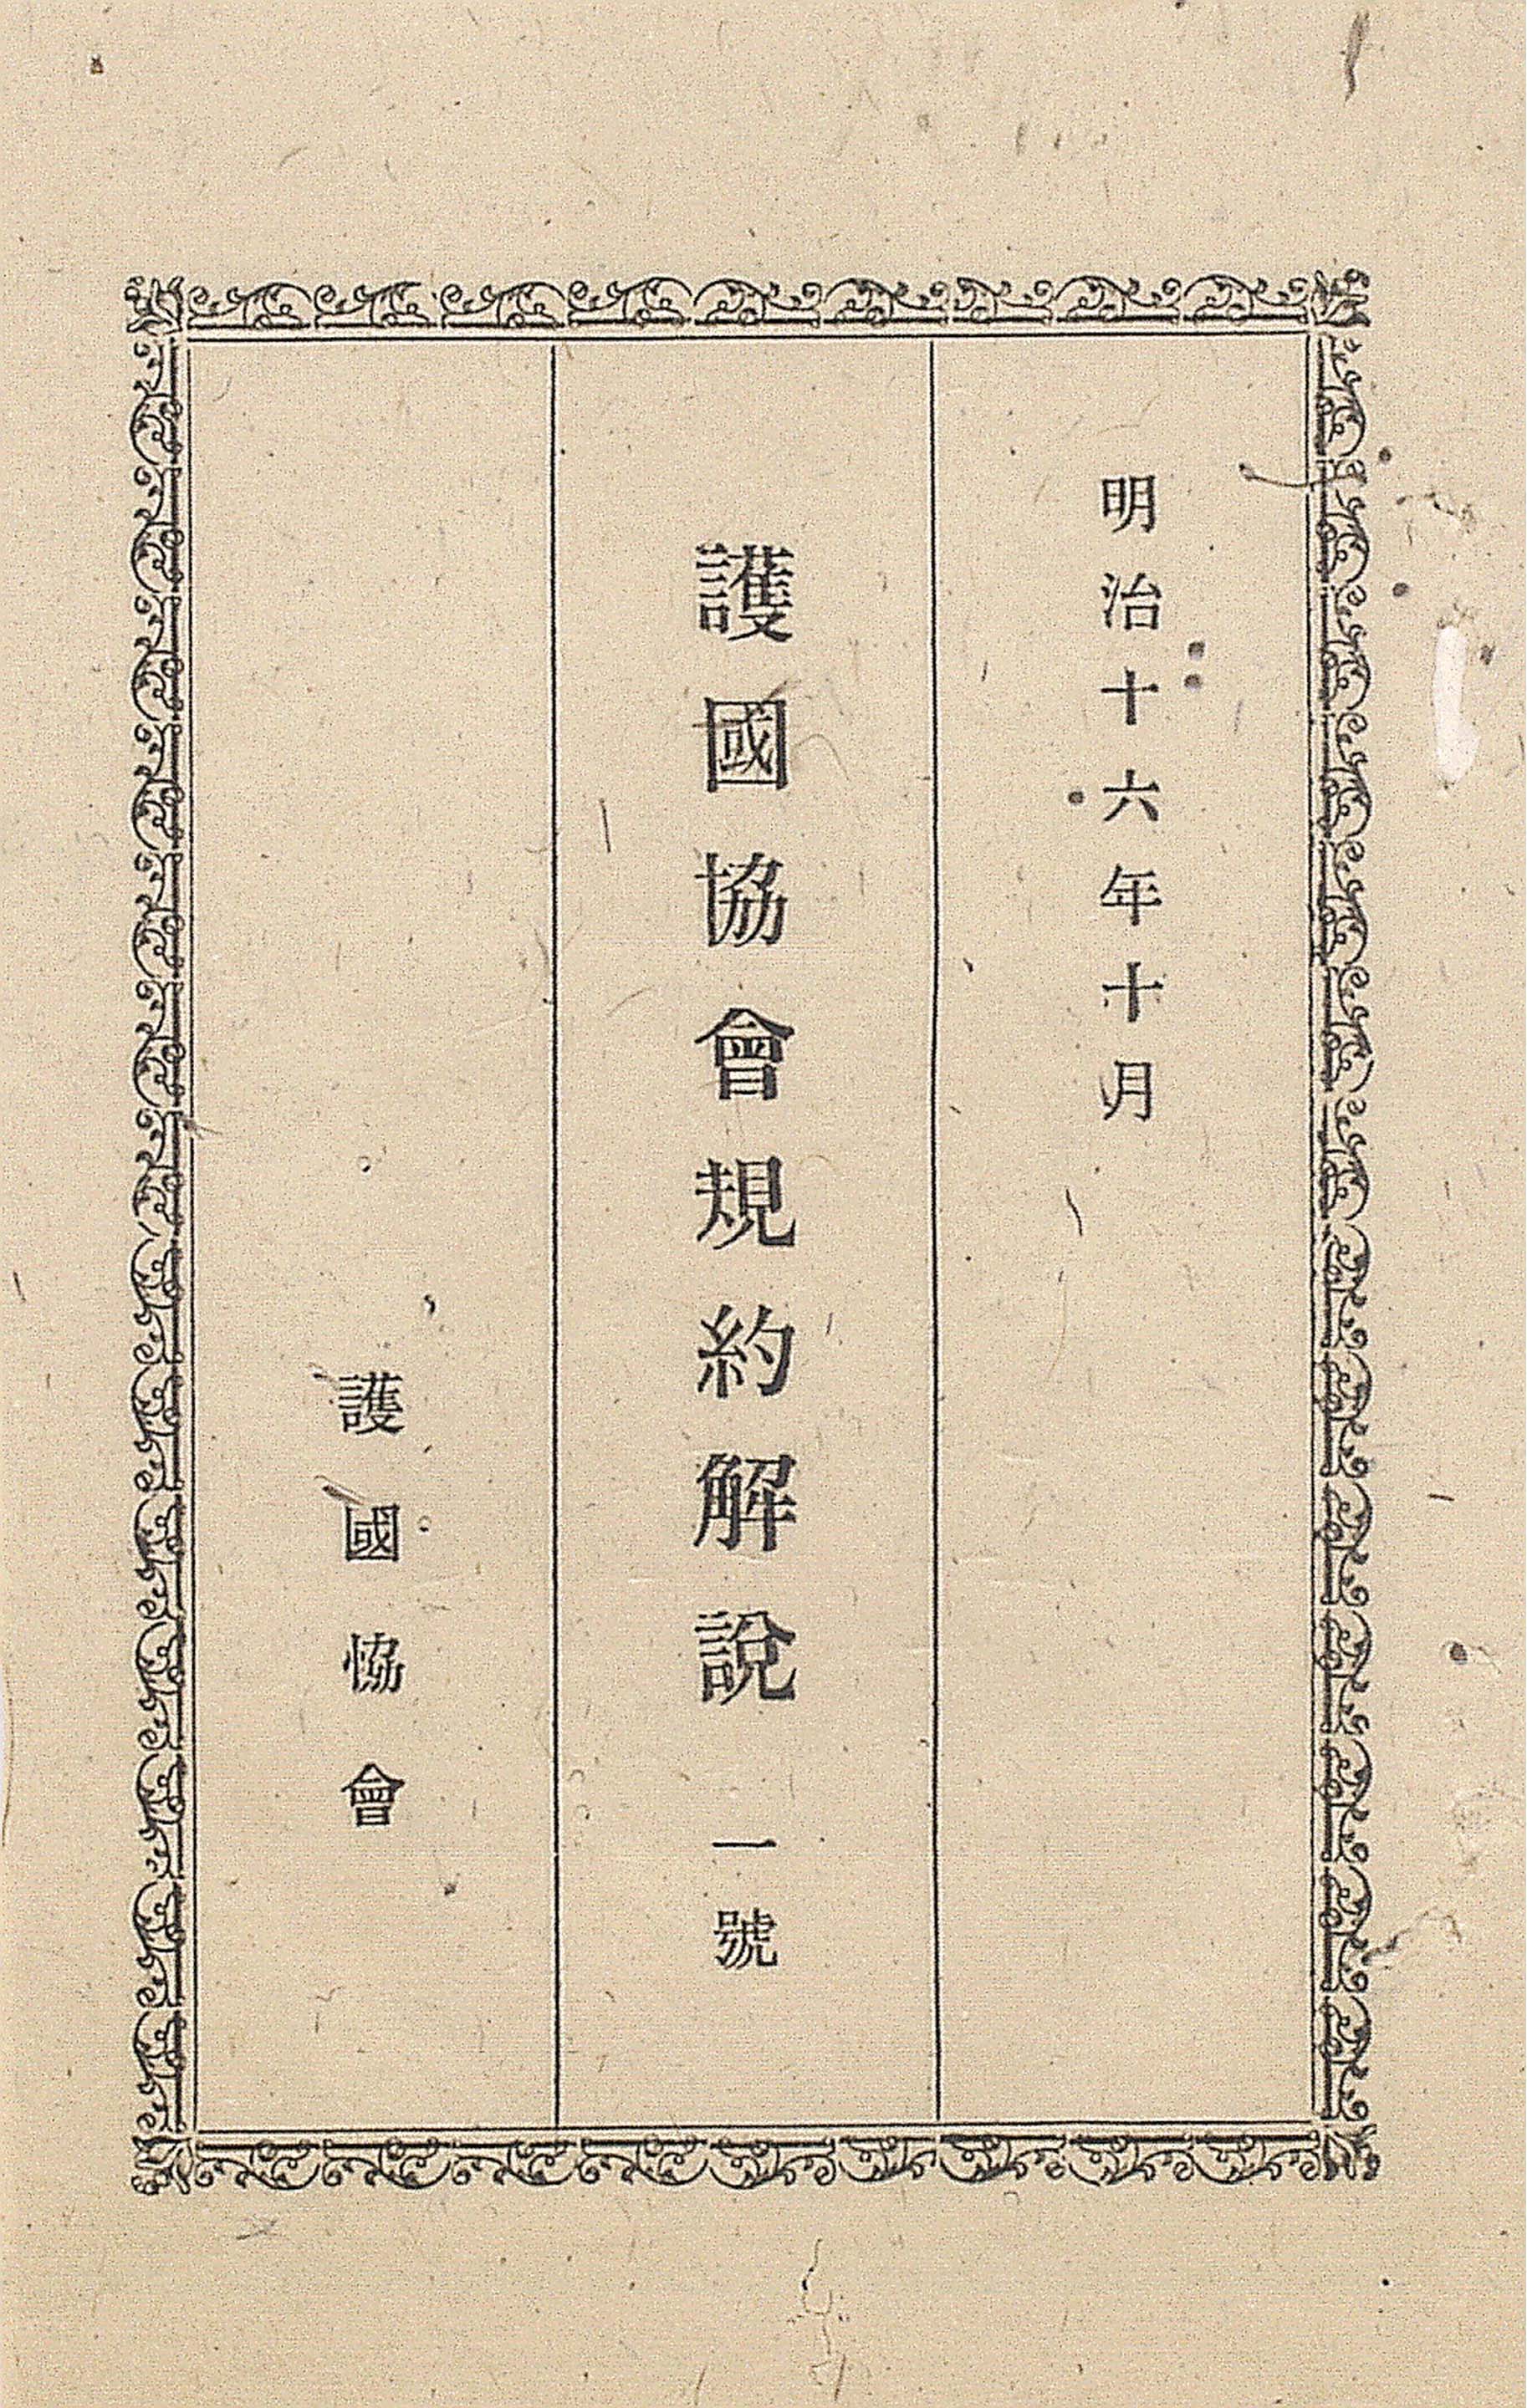 明治十六年十月
護國協會規約解說 一號
護國恊會